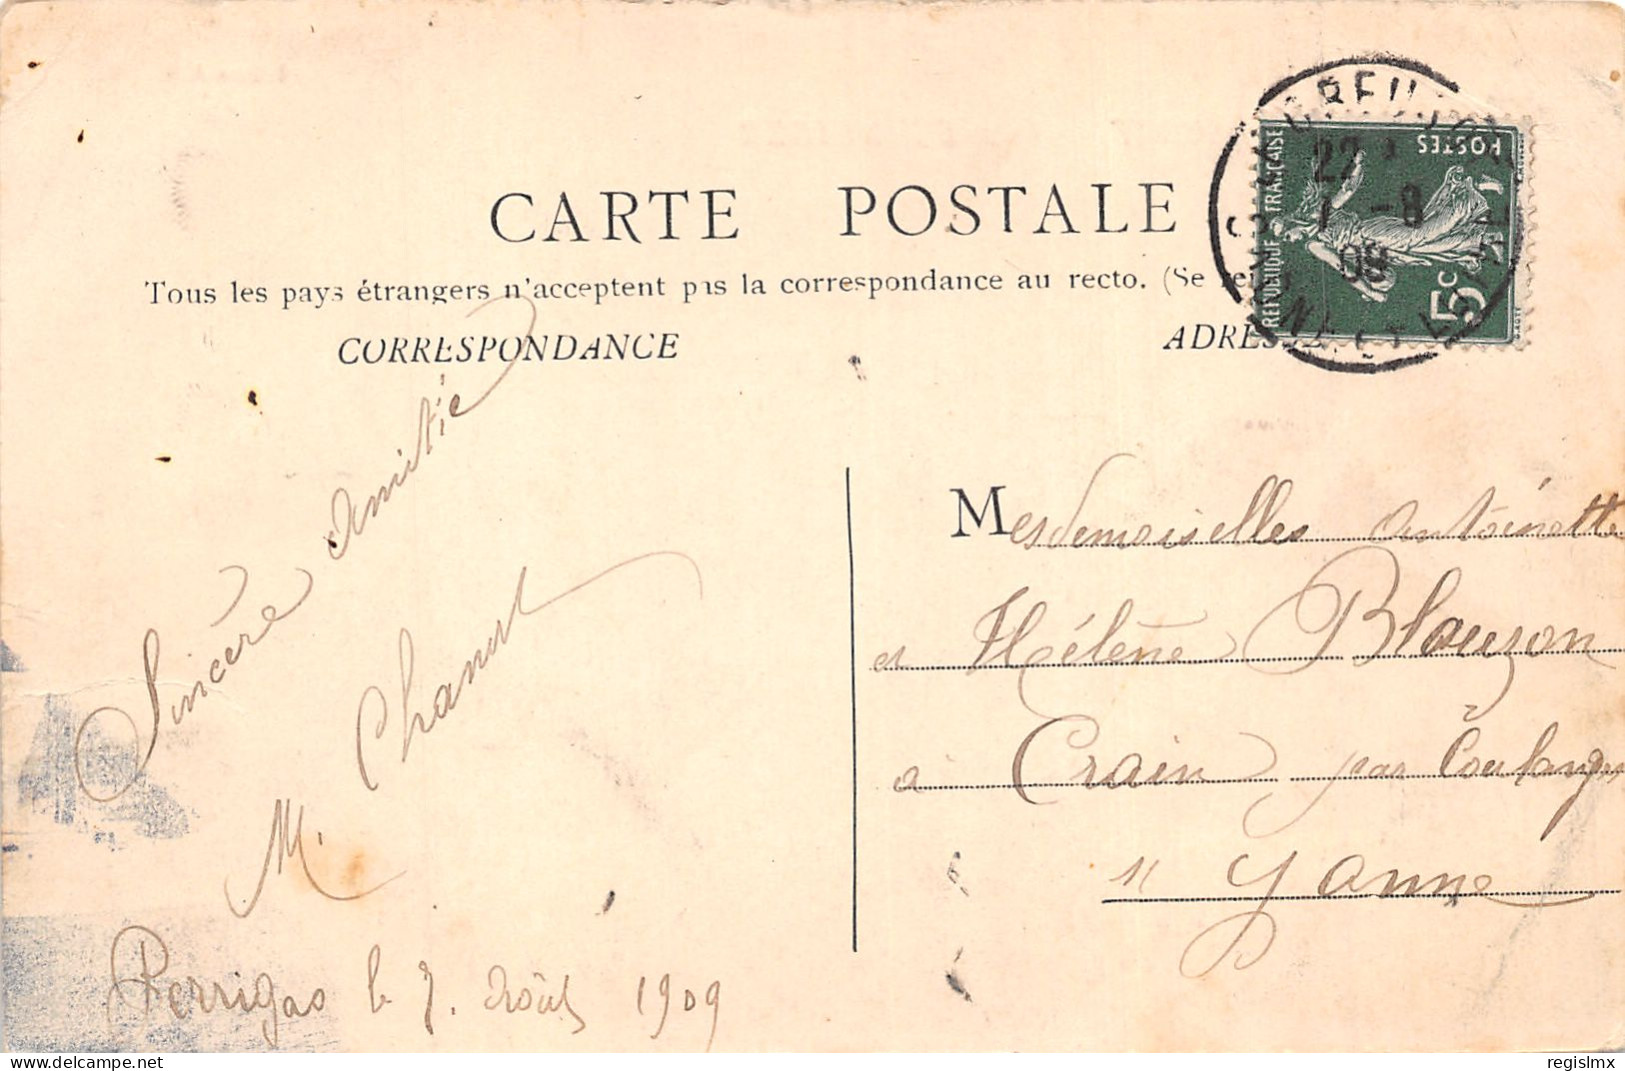 CARTE POSTALE
Tous les pays étrangers n'acceptent pas la correspondance au recto. (Se
CORRESPONDANCE
ADRESSE
REPUBLIQUE FRANÇAISE
POSTES
5c
22
7 -8
09
Sincère Amitié
M. Chanut
Perrigao le 7. Août 1909
Mesdemoiselles Antoinette
et Hélène Blouzon
a Crain par Coulanges
s/ Yonne
regislmx
delcampe.net